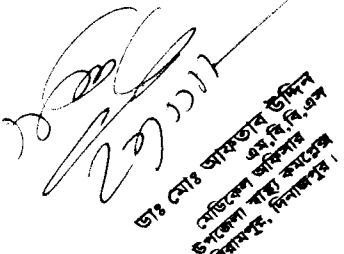 ডাঃ মোঃ আফতাব উদ্দিন
এম,বি,বি,এস
মেডিকেল অফিসার
উপজেলা স্বাস্থ্য কমপ্লেক্স
বিরামপুর, দিনাজপুর।